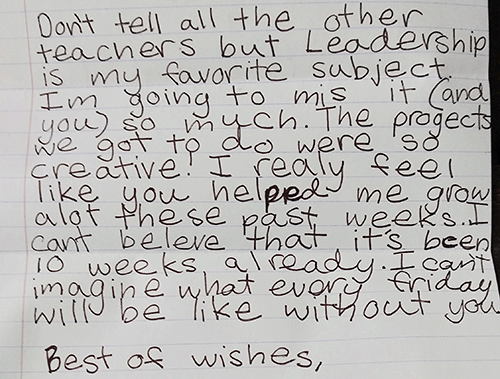 Don't tell all the other
teachers but Leadership
is my favorite subject.
Im going to mis it (and
you) so much. The progects
we got to do were so
creative! I realy feel
like you helpped me grow
alot these past weeks. I
cant beleve that it's been
10 weeks already. I can't
imagine what every friday
will be like without you
Best of wishes,